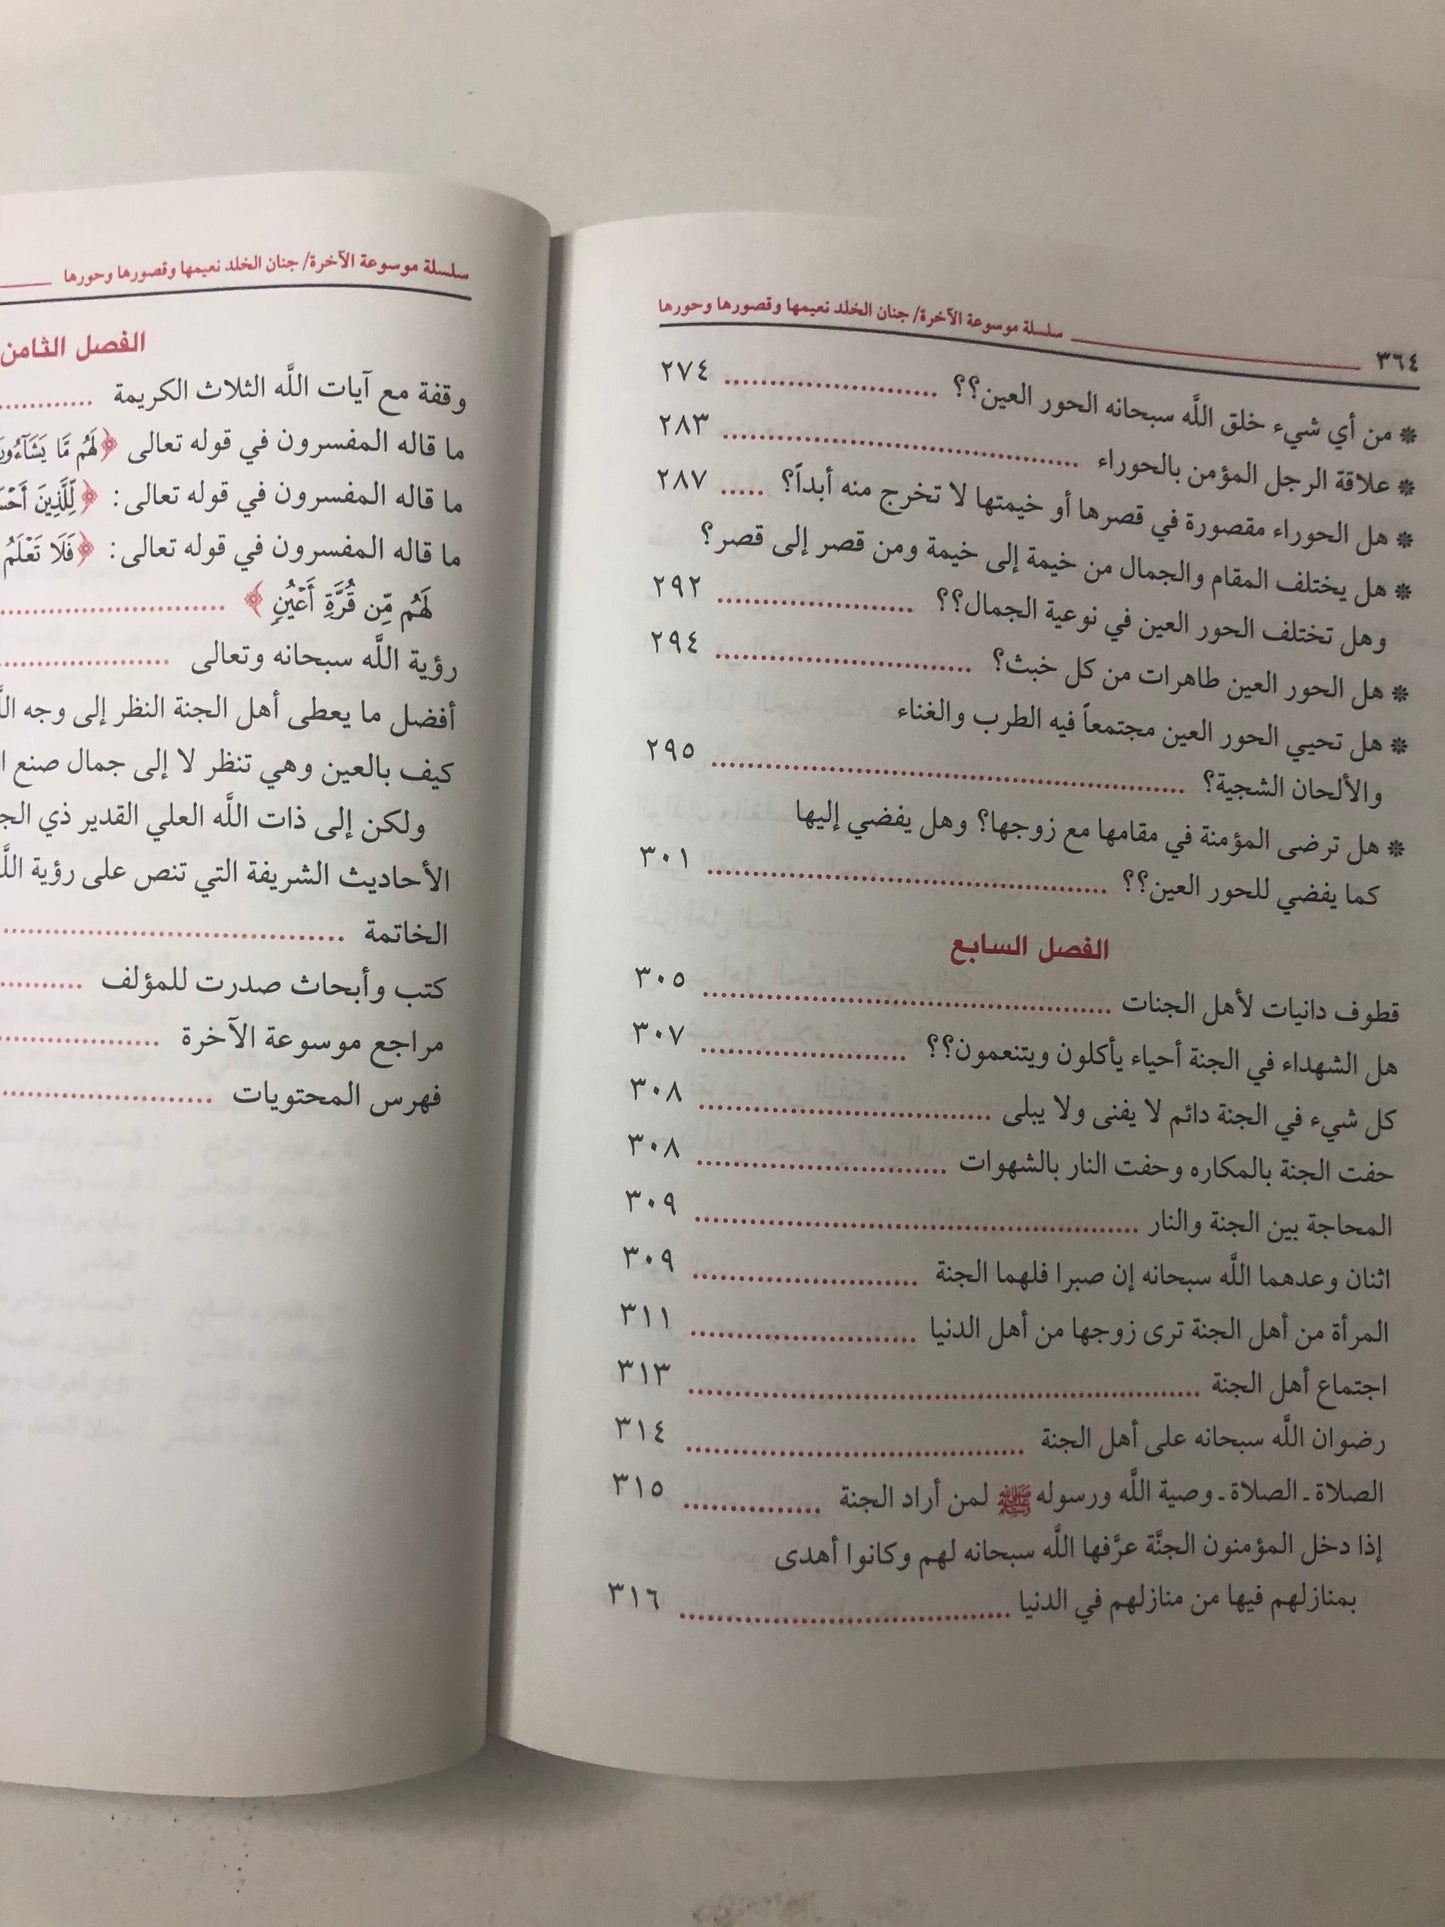 ٣٦٤ سلسلة موسوعة الآخرة/ جنان الخلد نعيمها وقصورها وحورها
❊ من أي شيء خلق اللَّه سبحانه الحور العين؟؟ ........................ ٢٧٤
❊ علاقة الرجل المؤمن بالحوراء ........................................ ٢٨٣
❊ هل الحوراء مقصورة في قصرها أو خيمتها لا تخرج منه أبداً؟ ..... ٢٨٧
❊ هل يختلف المقام والجمال من خيمة إلى خيمة ومن قصر إلى قصر؟
وهل تختلف الحور العين في نوعية الجمال؟؟ ...................... ٢٩٢
❊ هل الحور العين طاهرات من كل خبث؟ ............................ ٢٩٤
❊ هل تحيي الحور العين مجتمعاً فيه الطرب والغناء
والألحان الشجية؟ .................................................... ٢٩٥
❊ هل ترضى المؤمنة في مقامها مع زوجها؟ وهل يفضي إليها
كما يفضي للحور العين؟؟ ............................................ ٣٠١
الفصل السابع
قطوف دانيات لأهل الجنات ............................................. ٣٠٥
هل الشهداء في الجنة أحياء يأكلون ويتنعمون؟؟ ...................... ٣٠٧
كل شيء في الجنة دائم لا يفنى ولا يبلى ................................ ٣٠٨
حفت الجنة بالمكاره وحفت النار بالشهوات ........................... ٣٠٨
المحاجة بين الجنة والنار ................................................ ٣٠٩
اثنان وعدهما اللَّه سبحانه إن صبرا فلهما الجنة ......................... ٣٠٩
المرأة من أهل الجنة ترى زوجها من أهل الدنيا ......................... ٣١١
اجتماع أهل الجنة ........................................................ ٣١٣
رضوان اللَّه سبحانه على أهل الجنة ..................................... ٣١٤
الصلاة ـ الصلاة ـ وصية اللَّه ورسوله ﷺ لمن أراد الجنة ............... ٣١٥
إذا دخل المؤمنون الجنَّة عرَّفها اللَّه سبحانه لهم وكانوا أهدى
بمنازلهم فيها من منازلهم في الدنيا .................................... ٣١٦
سلسلة موسوعة الآخرة/ جنان الخلد نعيمها وقصورها وحورها
الفصل الثامن
وقفة مع آيات اللَّه الثلاث الكريمة ............
ما قاله المفسرون في قوله تعالى ﴿لَهُم مَّا يَشَآءُونَ
ما قاله المفسرون في قوله تعالى: ﴿لِّلَّذِينَ
ما قاله المفسرون في قوله تعالى: ﴿فَلَا تَعْلَمُ
لَهُم مِّن قُرَّةِ أَعْيُنٍ﴾ ........................
رؤية اللَّه سبحانه وتعالى ....................
أفضل ما يعطى أهل الجنة النظر إلى وجه
كيف بالعين وهي تنظر لا إلى جمال صنع
ولكن إلى ذات اللَّه العلي القدير ذي
الأحاديث الشريفة التي تنص على رؤية
الخاتمة ........................................
كتب وأبحاث صدرت للمؤلف ..........
مراجع موسوعة الآخرة ....................
فهرس المحتويات ..........................